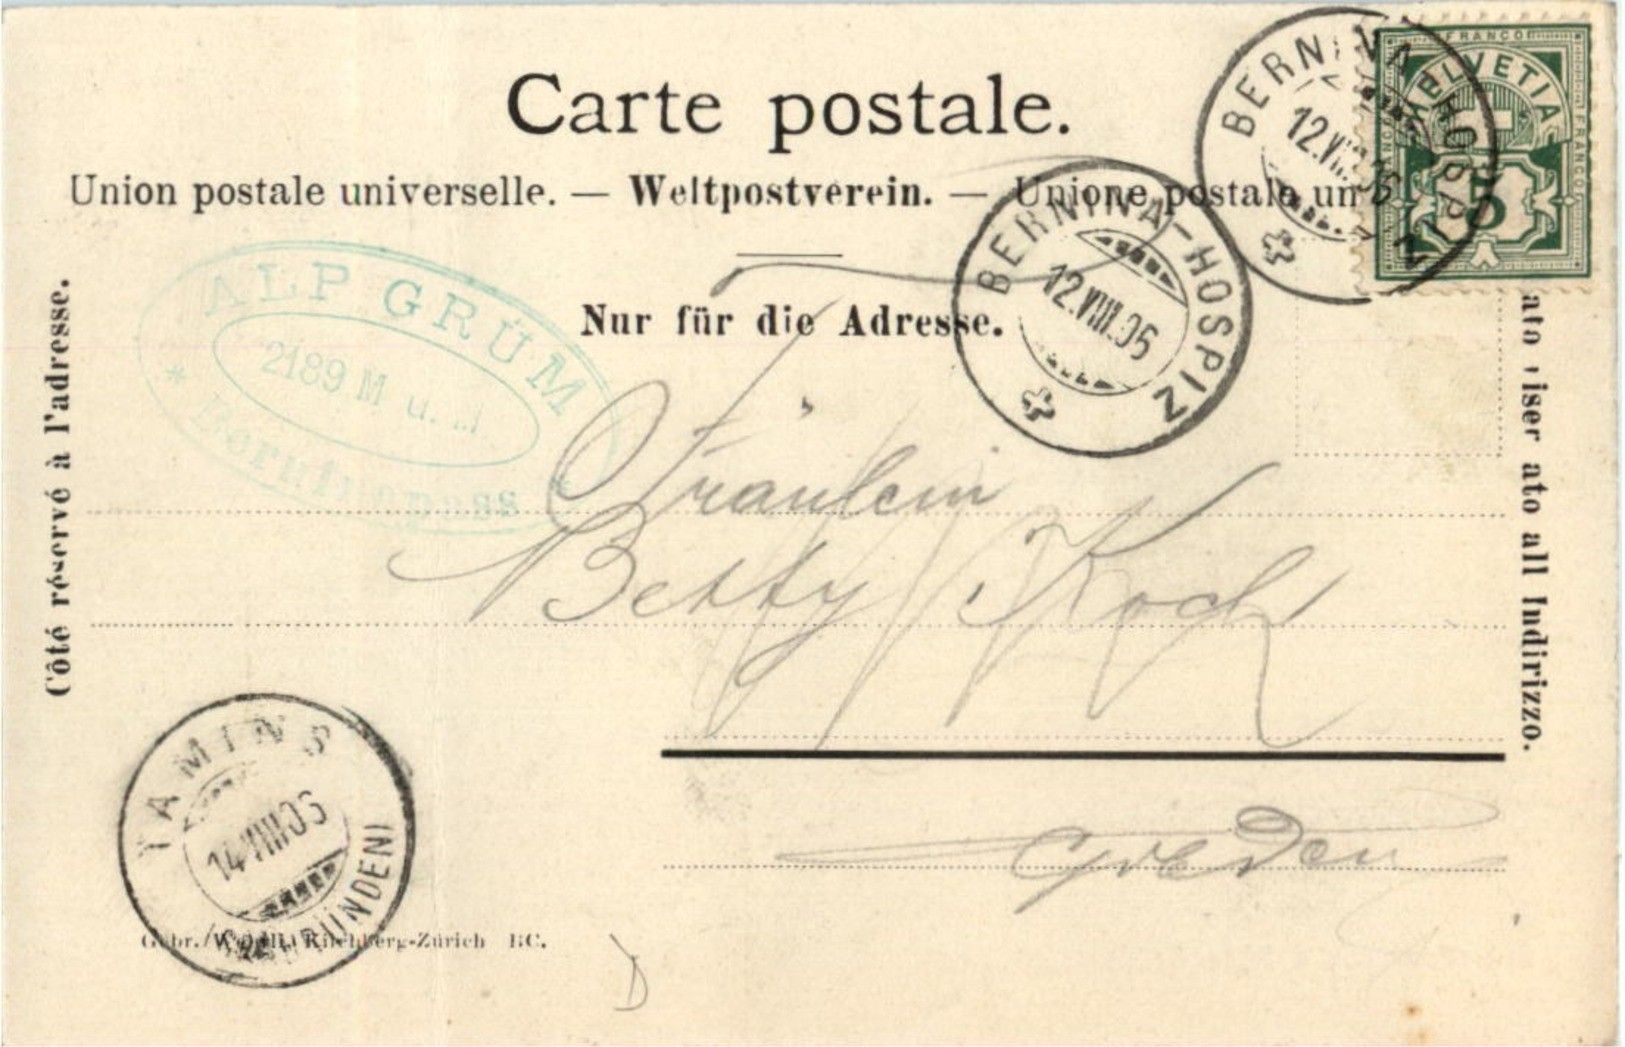 Carte postale.
Union postale universelle. — Weltpostverein. — Unione postale un
Nur für die Adresse.
Côté réservé à l'adresse.
ato all Indirizzo.
FRANCO
HELVETIA
5
BERNINA-HOSPIZ
12.VIII.06
BERNINA-HOSPIZ
12.VIII.06
ALP GRÜM
2189 M ü. M.
* Berninapass *
Fräulein
Betty Koch
TAMINS
14.VIII.06
(GRAUBÜNDEN)
Gebr. Wehrli, Kilchberg-Zürich BC.